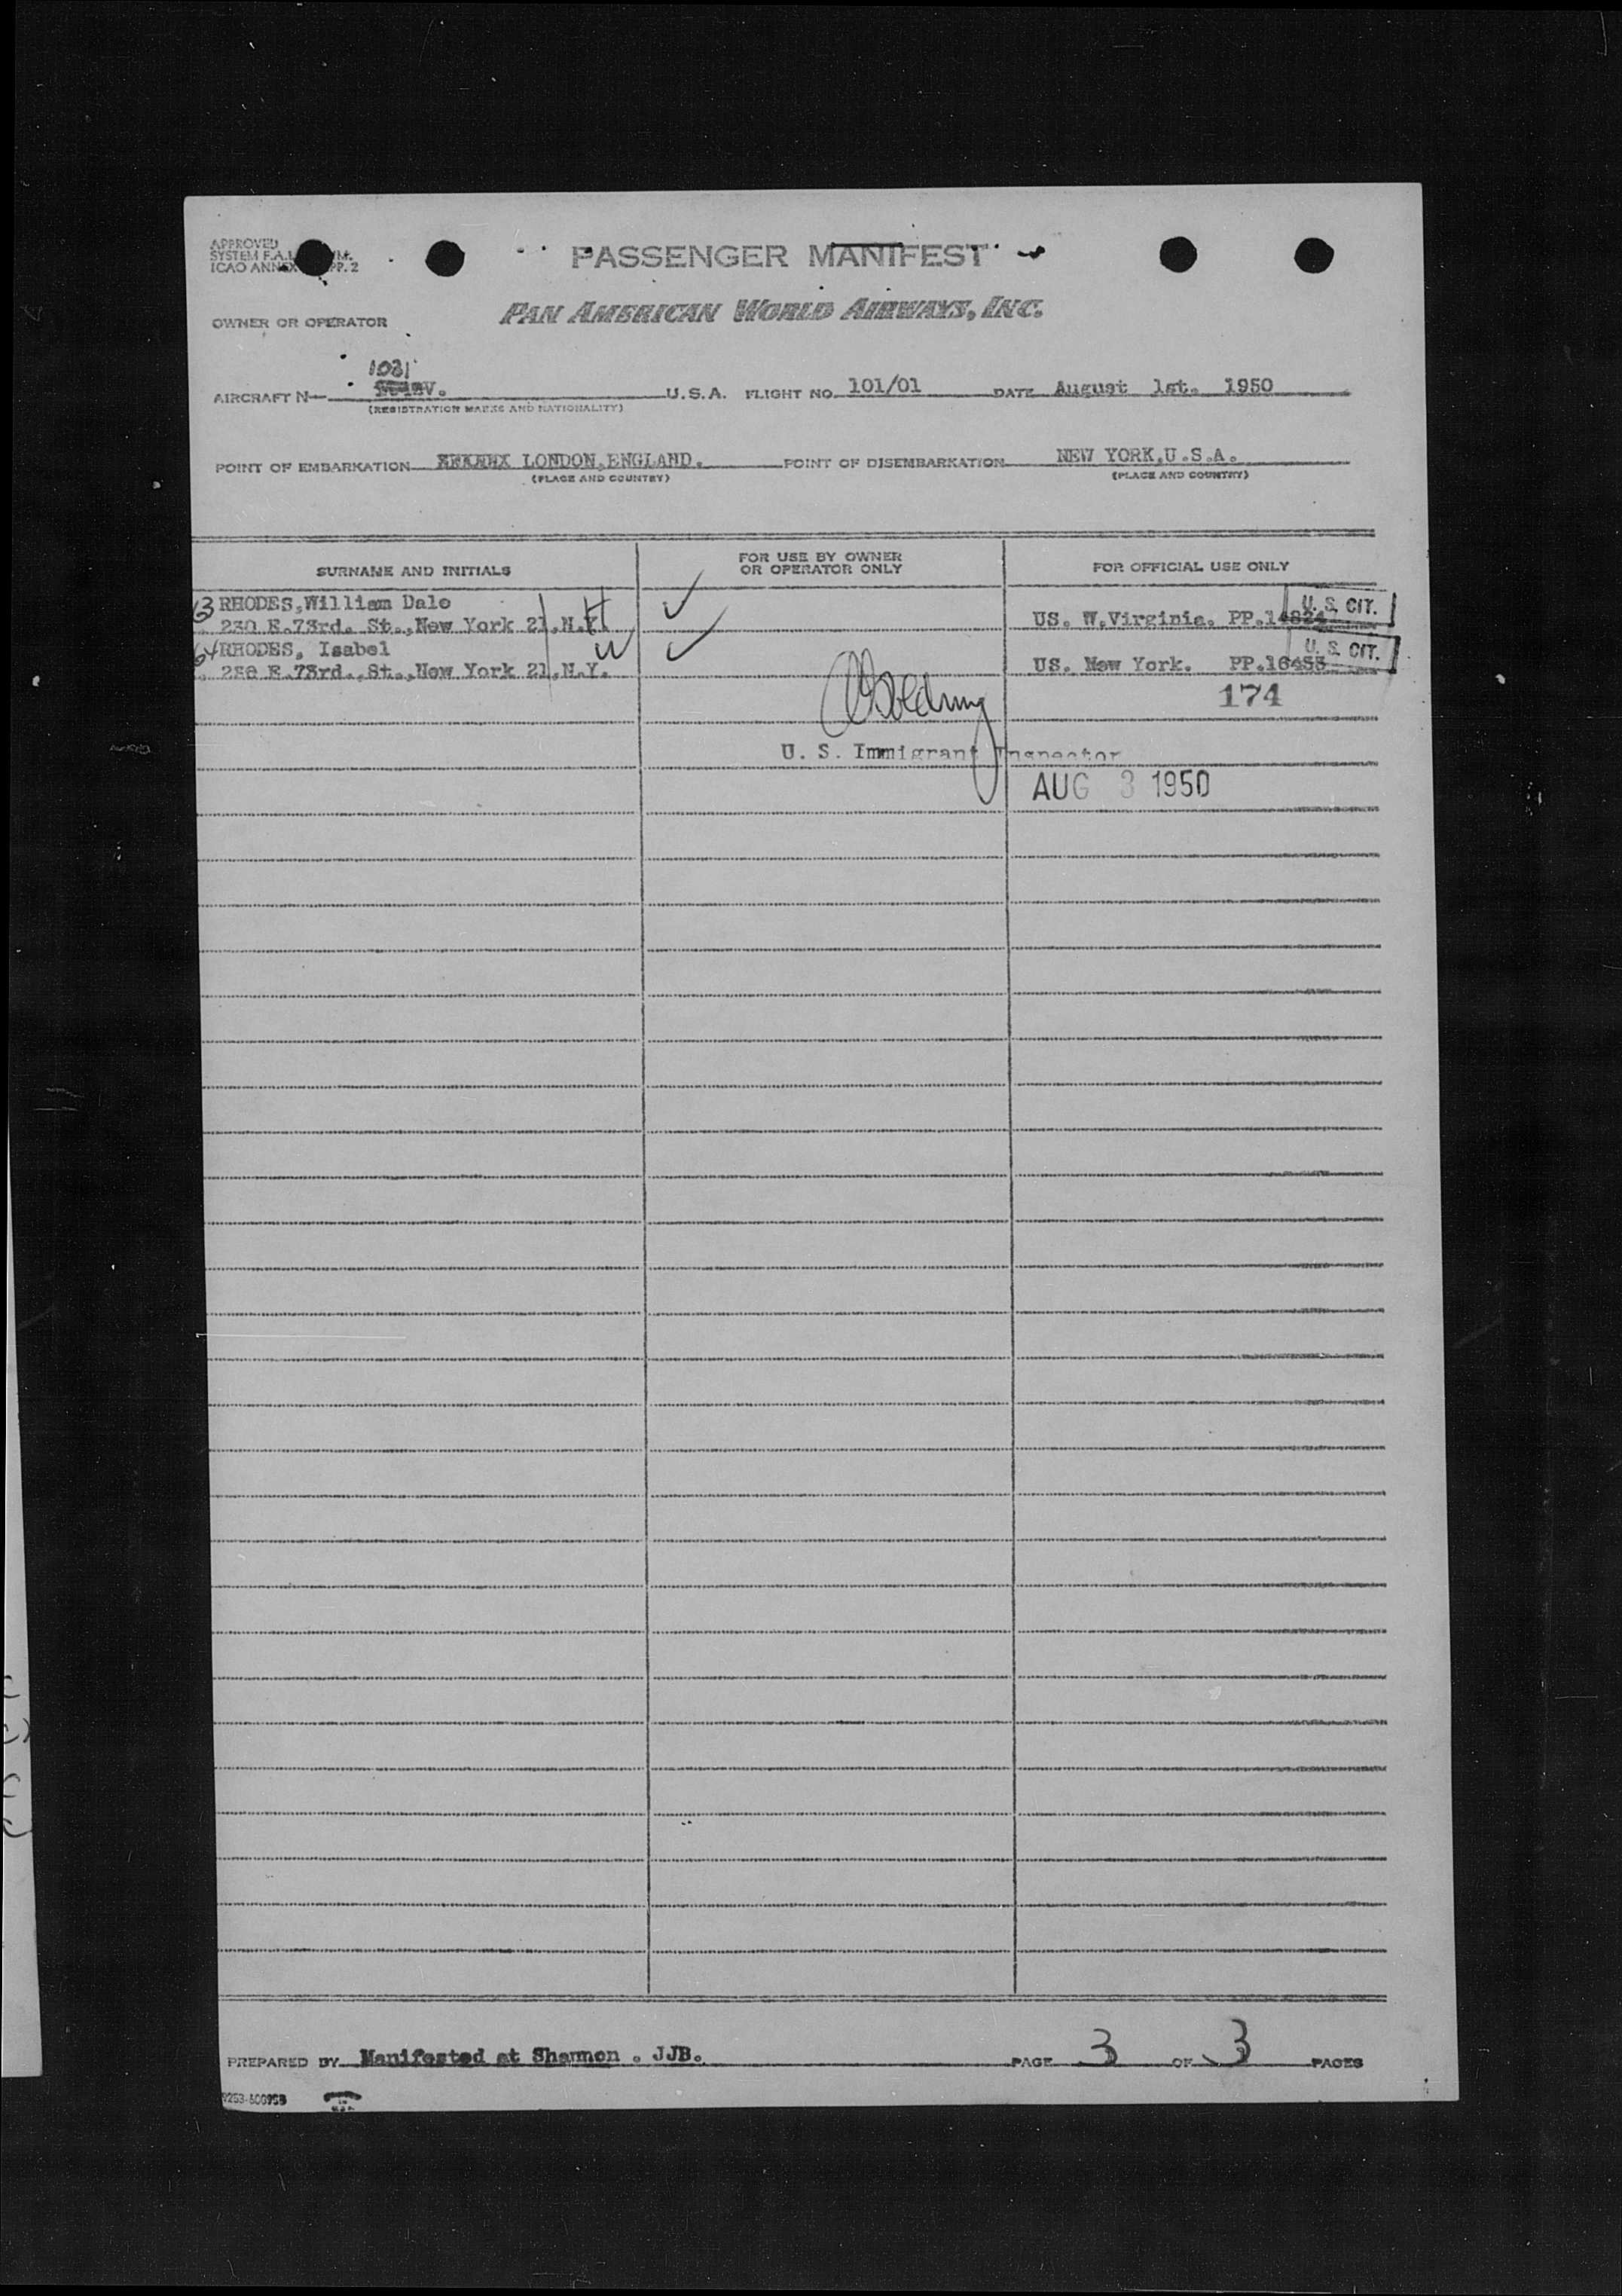 APPROVED
SYSTEM F.A.L.
ICAO ANNEX PP. 2
PASSENGER MANIFEST
OWNER OR OPERATOR
PAN AMERICAN WORLD AIRWAYS, INC.
AIRCRAFT N— 1031 V. U.S.A. FLIGHT NO. 101/01 DATE August 1st. 1950
(REGISTRATION MARKS AND NATIONALITY)
POINT OF EMBARKATION LONDON,ENGLAND. POINT OF DISEMBARKATION NEW YORK,U.S.A.
(PLACE AND COUNTRY) (PLACE AND COUNTRY)
SURNAME AND INITIALS
FOR USE BY OWNER
OR OPERATOR ONLY
FOR OFFICIAL USE ONLY
63 RHODES,William Dale
230 E.73rd. St.,New York 21,N.Y. H
US. W.Virginia. PP.14824
U. S. CIT.
64 RHODES, Isabel W
230 E.73rd.,St.,New York 21,N.Y.
US. New York. PP.16455
U. S. CIT.
174
U. S. Immigrant Inspector
AUG 3 1950
PREPARED BY Manifested at Shannon . JJB. PAGE 3 OF 3 PAGES